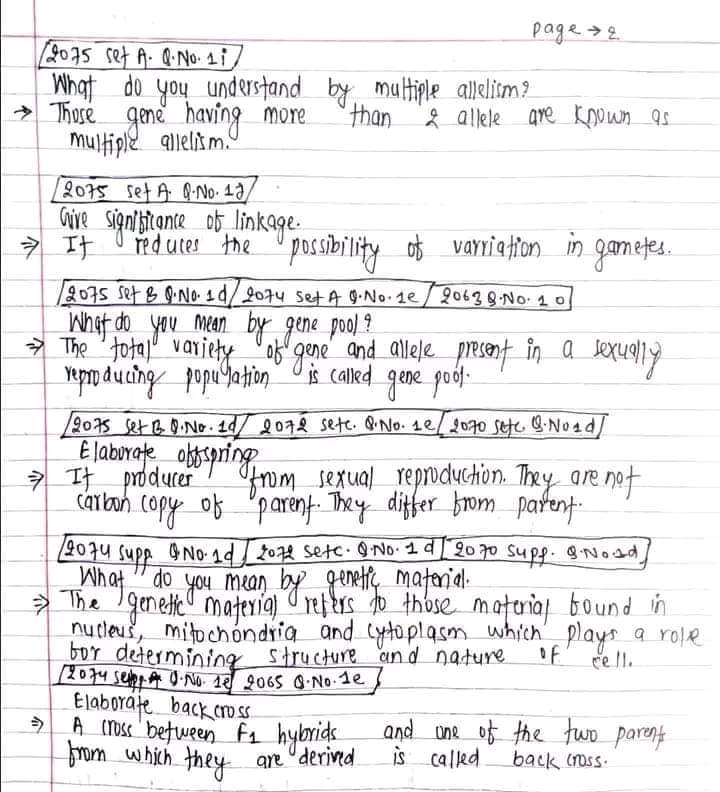 page → 2
2075 set A. Q.No. 1i
What do you understand by multiple allelism?
→ Those gene having more than 2 allele are known as
multiple allelism.
2075 set A. Q.No. 1j
Give significance of linkage.
⇒ It reduces the possibility of varriation in gametes.
2075 set B Q.No. 1d/ 2074 set A Q.No. 1e / 2063 Q.No. 1 o
What do you mean by gene pool?
⇒ The total variety of gene and allele present in a sexually
reproducing population is called gene pool.
2075 set B Q.No. 1d/ 2072 setc. Q.No. 1e/ 2070 setc Q.No 1d/
Elaborate offspring
⇒ It producer from sexual reproduction. They are not
carbon copy of parent. They differ from parent.
2074 supp Q No. 1d / 2072 setc. Q.No. 1 d / 2070 supp. Q.No 1d
What do you mean by genetic material.
⇒ The genetic material refers to those material found in
nucleus, mitochondria and cytoplasm which plays a role
for determining structure and nature of cell.
2074 A Q.No. 1e/ 2065 Q.No. 1e
Elaborate backcross
⇒ A cross between F1 hybrids and one of the two parent
from which they are derived is called back cross.